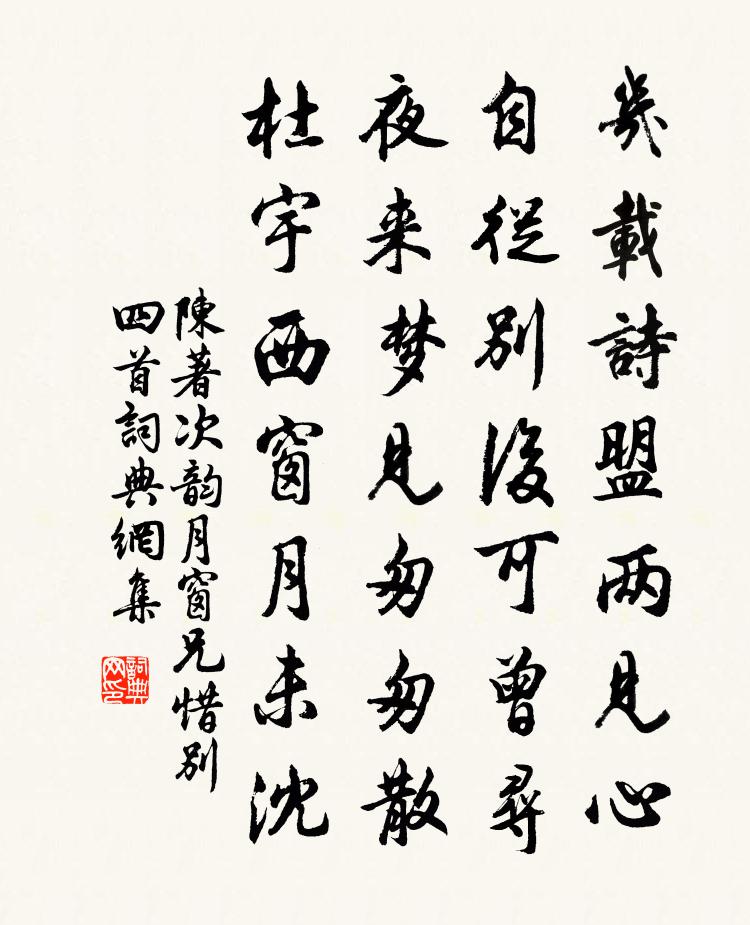 幾載詩盟两見心
自從别後可曾尋
夜来梦見匆匆散
杜宇西窗月未沈
陳著次韵月窗兄惜别
四首詞典網集
詞典网印